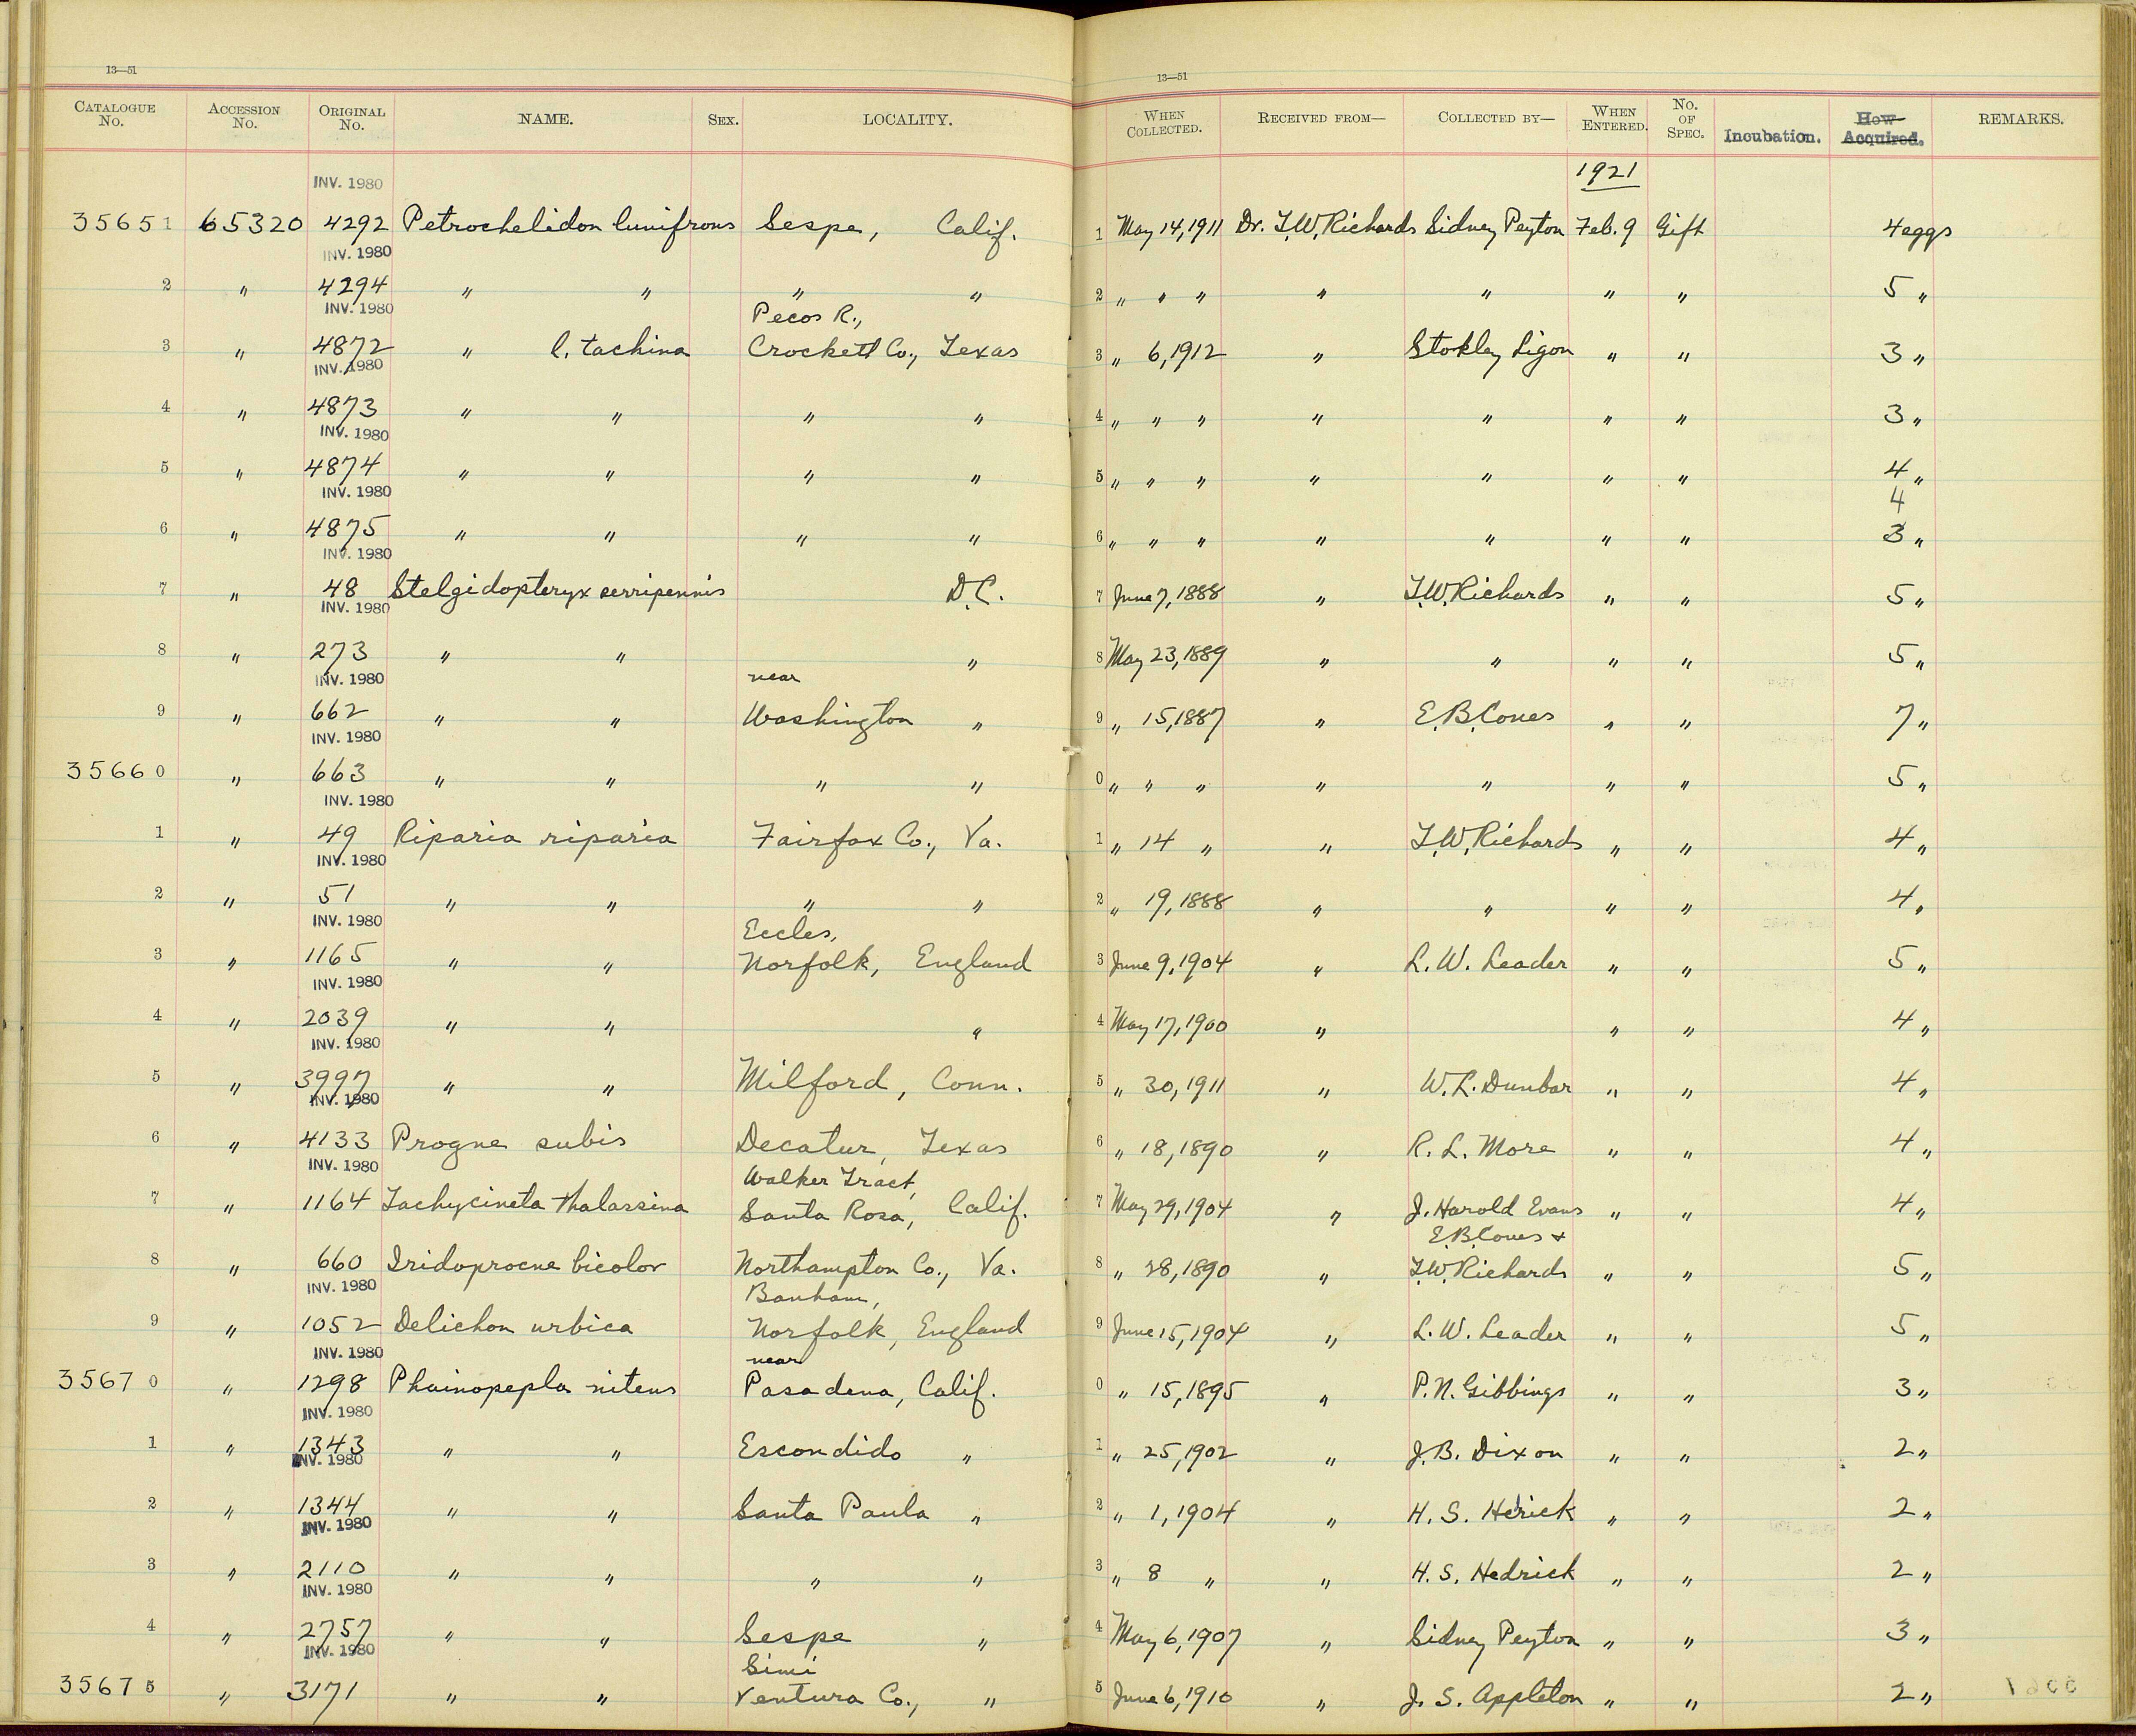 13—51
13—51
CATALOGUE No. ACCESSION No. ORIGINAL No. NAME. SEX. LOCALITY. WHEN COLLECTED. RECEIVED FROM— COLLECTED BY— WHEN ENTERED. No. OF SPEC. Incubation. How Acquired. REMARKS.
1921
INV. 1980
35651 65320 4292 Petrochelidon lunifrons Sespe, Calif. 1 May 14, 1911 Dr. T.W. Richards Sidney Peyton Feb. 9 Gift 4 eggs
INV. 1980
2 " 4294 " " " " 2 " " " " " " " 5 "
INV. 1980 Pecos R.,
3 " 4872 " l. tachina Crockett Co., Texas 3 " 6, 1912 " Stokley Ligon " " 3 "
INV. 1980
4 " 4873 " " " " 4 " " " " " " " 3 "
INV. 1980
5 " 4874 " " " " 5 " " " " " " " 4 "
INV. 1980 4
6 " 4875 " " " " 6 " " " " " " " 3 "
INV. 1980
7 " 48 Stelgidopteryx serripennis D.C. 7 June 7, 1888 " T.W. Richards " " 5 "
INV. 1980
8 " 273 " " " 8 May 23, 1889 " " " " 5 "
INV. 1980 near
9 " 662 " " Washington " 9 " 15, 1887 " E.B. Coues " " 7 "
INV. 1980
35660 " 663 " " " " 0 " " " " " " " 5 "
INV. 1980
1 " 49 Riparia riparia Fairfax Co., Va. 1 " 14 " " T.W. Richards " " 4 "
INV. 1980
2 " 51 " " " " 2 " 19, 1888 " " " " 4 "
INV. 1980 Eccles,
3 " 1165 " " Norfolk, England 3 June 9, 1904 " L. W. Leader " " 5 "
INV. 1980
4 " 2039 " " " 4 May 17, 1900 " " " 4 "
INV. 1980
5 " 3997 " " Milford, Conn. 5 " 30, 1911 " W. L. Dunbar " " 4 "
INV. 1980
6 " 4133 Progne subis Decatur, Texas 6 " 18, 1890 " R. L. More " " 4 "
INV. 1980 Walker Tract,
7 " 1164 Tachycineta thalassina Santa Rosa, Calif. 7 May 29, 1904 " J. Harold Evans " " 4 "
E.B. Coues +
8 " 660 Iridoprocne bicolor Northampton Co., Va. 8 " 28, 1890 " T.W. Richards " " 5 "
INV. 1980 Banham,
9 " 1052 Delichon urbica Norfolk, England 9 June 15, 1904 " L. W. Leader " " 5 "
INV. 1980 near
35670 " 1298 Phainopepla nitens Pasadena, Calif. 0 " 15, 1895 " P. N. Gibbings " " 3 "
INV. 1980
1 " 1343 " " Escondido " 1 " 25, 1902 " J. B. Dixon " " 2 "
INV. 1980
2 " 1344 " " Santa Paula " 2 " 1, 1904 " H. S. " " 2 "
INV. 1980
3 " 2110 " " " " 3 " 8 " " H. S. Hedrick " " 2 "
INV. 1980
4 " 2757 " " Sespe " 4 May 6, 1907 " Sidney Peyton " " 3 "
INV. 1980 Simi
35675 " 3171 " " Ventura Co., " 5 June 6, 1910 " J. S. Appleton " " 2 "